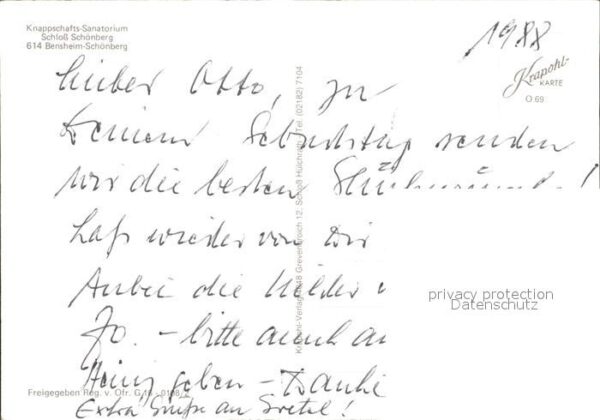 Knappschafts-Sanatorium
Schloß Schönberg
614 Bensheim-Schönberg
1988
Krapohl-
KARTE
O 69
Lieber Otto, zu
Deinem Geburtstag senden
wir die besten Glückwünsche!
Laß wieder von Dir
Anbei die Bilder
Jo. – bitte auch an
Heinz geben – Danke
Extra Grüße an Gretel!
Krapohl-Verlag 4048 Grevenbroich 12, Schloß Hülchrath, Tel. (02182) 7104
privacy protection
Datenschutz
Freigegeben Reg. v. Ofr. G